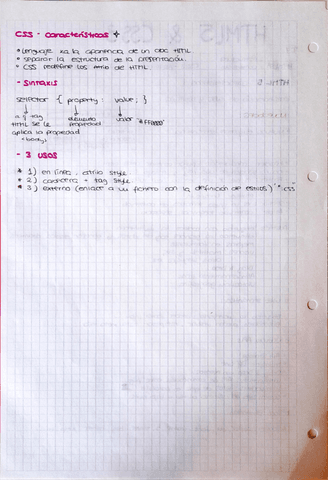 CSS - Características
• Lenguaje xa la apariencia de un doc HTML
• separar la estructura de la presentación.
• CSS redefine los de HTML
- SINTAXIS
selector { property : value ; }
a q tag elemento valor "#FF0000"
HTML se le propiedad
aplica la propiedad
<body>
- 3 USOS
* 1) en línea, atrib style
* 2) cabecera + tag style
* 3) externo (enlace a un fichero con la definición de estilos) "*.css"
HTML5 & CSS